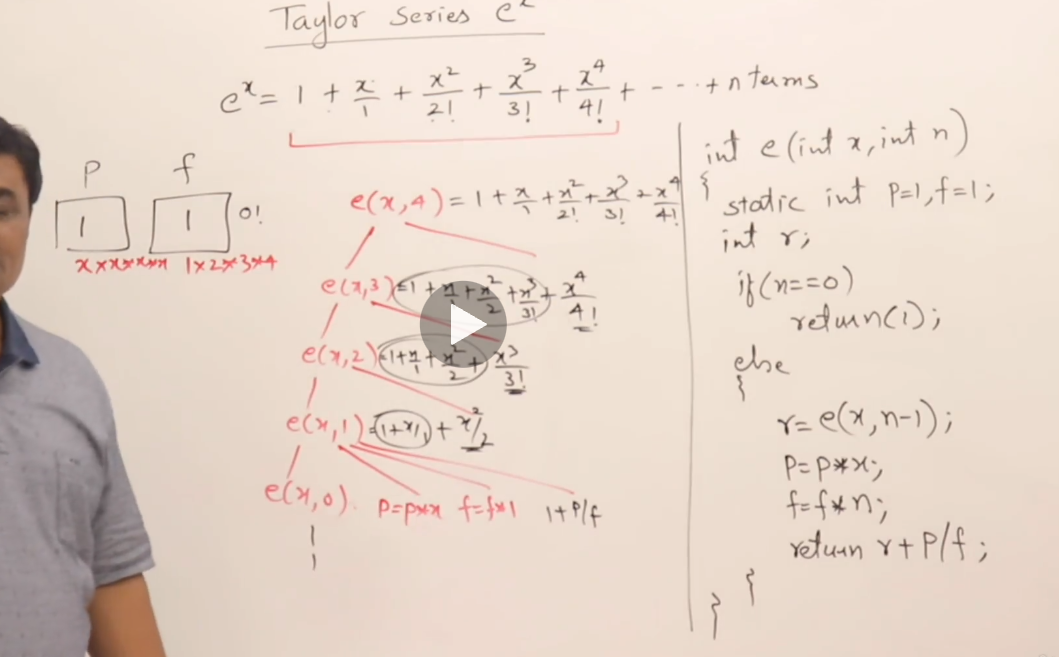 Taylor Series eˣ
eˣ = 1 + x/1 + x²/2! + x³/3! + x⁴/4! + - - - + n terms
P f
1 1 0!
x*x*x*x 1*2*3*4
e(x,4) = 1 + x/1 + x²/2! + x³/3! + x⁴/4!
e(x,3) = 1 + x/1 + x²/2 + x³/3! + x⁴/4!
e(x,2) = 1 + x/1 + x²/2 + x³/3!
e(x,1) = 1 + x/1 + x²/2
e(x,0). P=P*x f=f*1 1+P/f
1
int e(int x, int n)
{
static int P=1, f=1;
int r;
if(n==0)
return(1);
else
{
r=e(x,n-1);
P=P*x;
f=f*n;
return r+P/f;
}
}